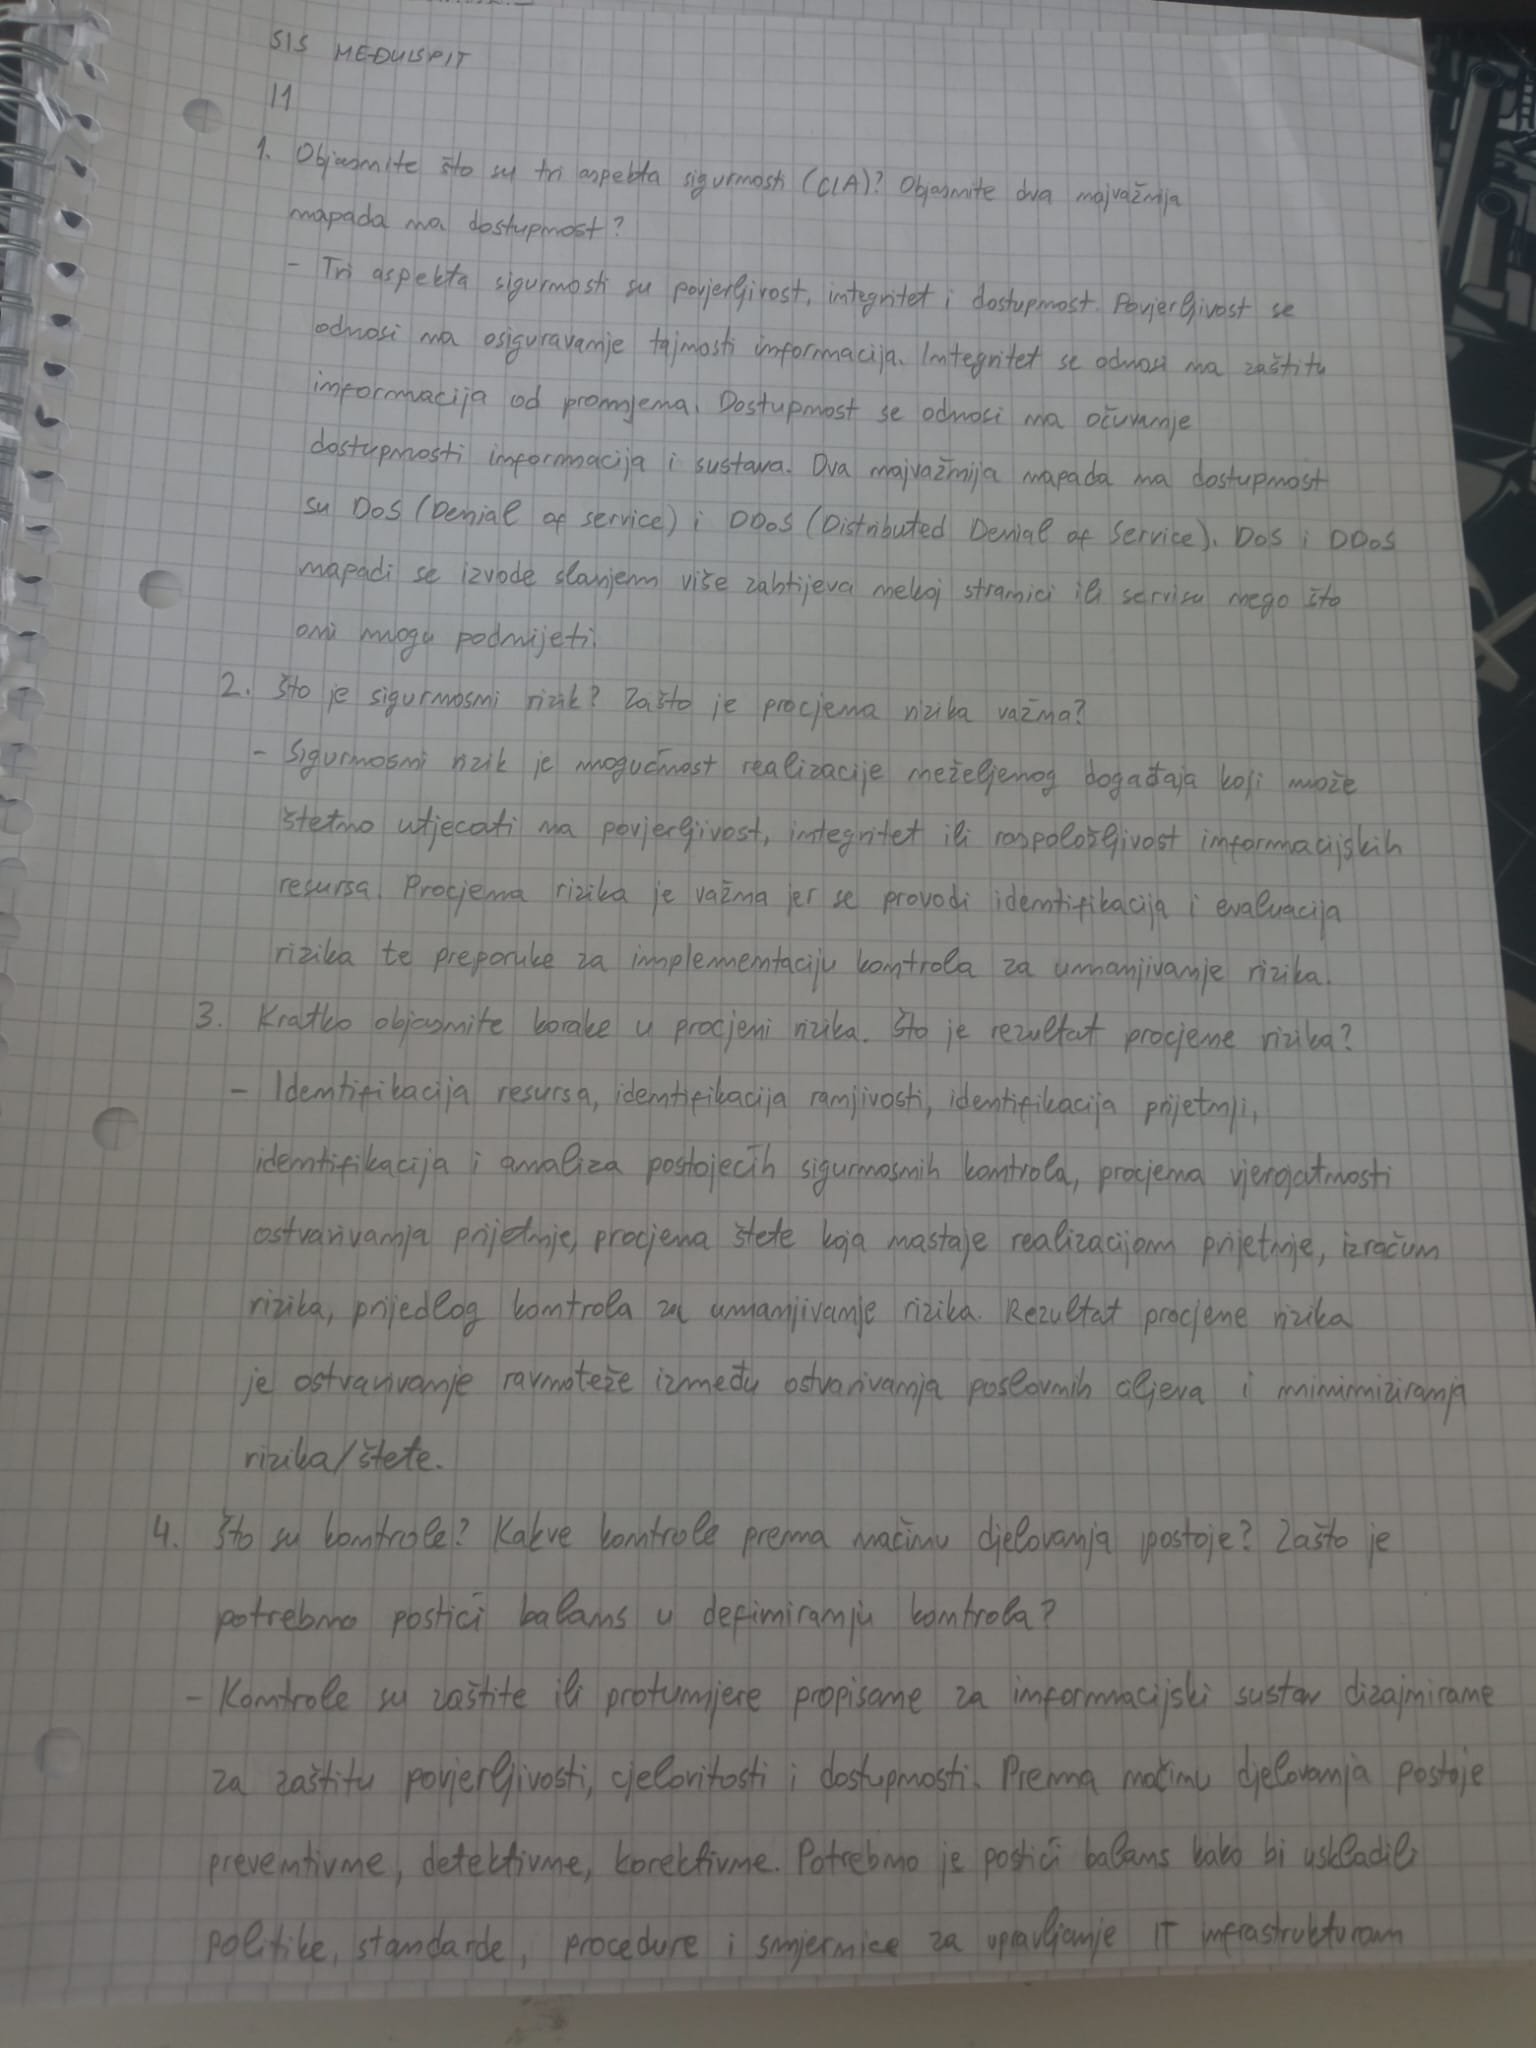 SIS MEĐUISPIT
11
1. Objasnite što su tri aspekta sigurnosti (CIA)? Objasnite dva najvažnija
napada na dostupnost?
- Tri aspekta sigurnosti su povjerljivost, integritet i dostupnost. Povjerljivost se
odnosi na osiguravanje tajnosti informacija. Integritet se odnosi na zaštitu
informacija od promjena. Dostupnost se odnosi na očuvanje
dostupnosti informacija i sustava. Dva najvažnija napada na dostupnost
su DoS (Denial of service) i DDoS (Distributed Denial of Service). DoS i DDoS
napadi se izvode slanjem više zahtijeva nekoj stranici ili servisu nego što
oni mogu podnijeti.
2. Što je sigurnosni rizik? Zašto je procjena rizika važna?
- Sigurnosni rizik je mogućnost realizacije neželjenog događaja koji može
štetno utjecati na povjerljivost, integritet ili raspoloživost informacijskih
resursa. Procjena rizika je važna jer se provodi identifikacija i evaluacija
rizika te preporuke za implementaciju kontrola za umanjivanje rizika.
3. Kratko objasnite korake u procjeni rizika. Što je rezultat procjene rizika?
- Identifikacija resursa, identifikacija ranjivosti, identifikacija prijetnji,
identifikacija i analiza postojećih sigurnosnih kontrola, procjena vjerojatnosti
ostvarivanja prijetnje, procjena štete koja nastaje realizacijom prijetnje, izračun
rizika, prijedlog kontrola za umanjivanje rizika. Rezultat procjene rizika
je ostvarivanje ravnoteže između ostvarivanja poslovnih ciljeva i minimiziranja
rizika/štete.
4. Što su kontrole? Kakve kontrole prema načinu djelovanja postoje? Zašto je
potrebno postići balans u definiranju kontrola?
- Kontrole su zaštite ili protumjere propisane za informacijski sustav dizajnirane
za zaštitu povjerljivosti, cjelovitosti i dostupnosti. Prema načinu djelovanja postoje
preventivne, detektivne, korektivne. Potrebno je postići balans kako bi uskladili
politike, standarde, procedure i smjernice za upravljanje IT infrastrukturom